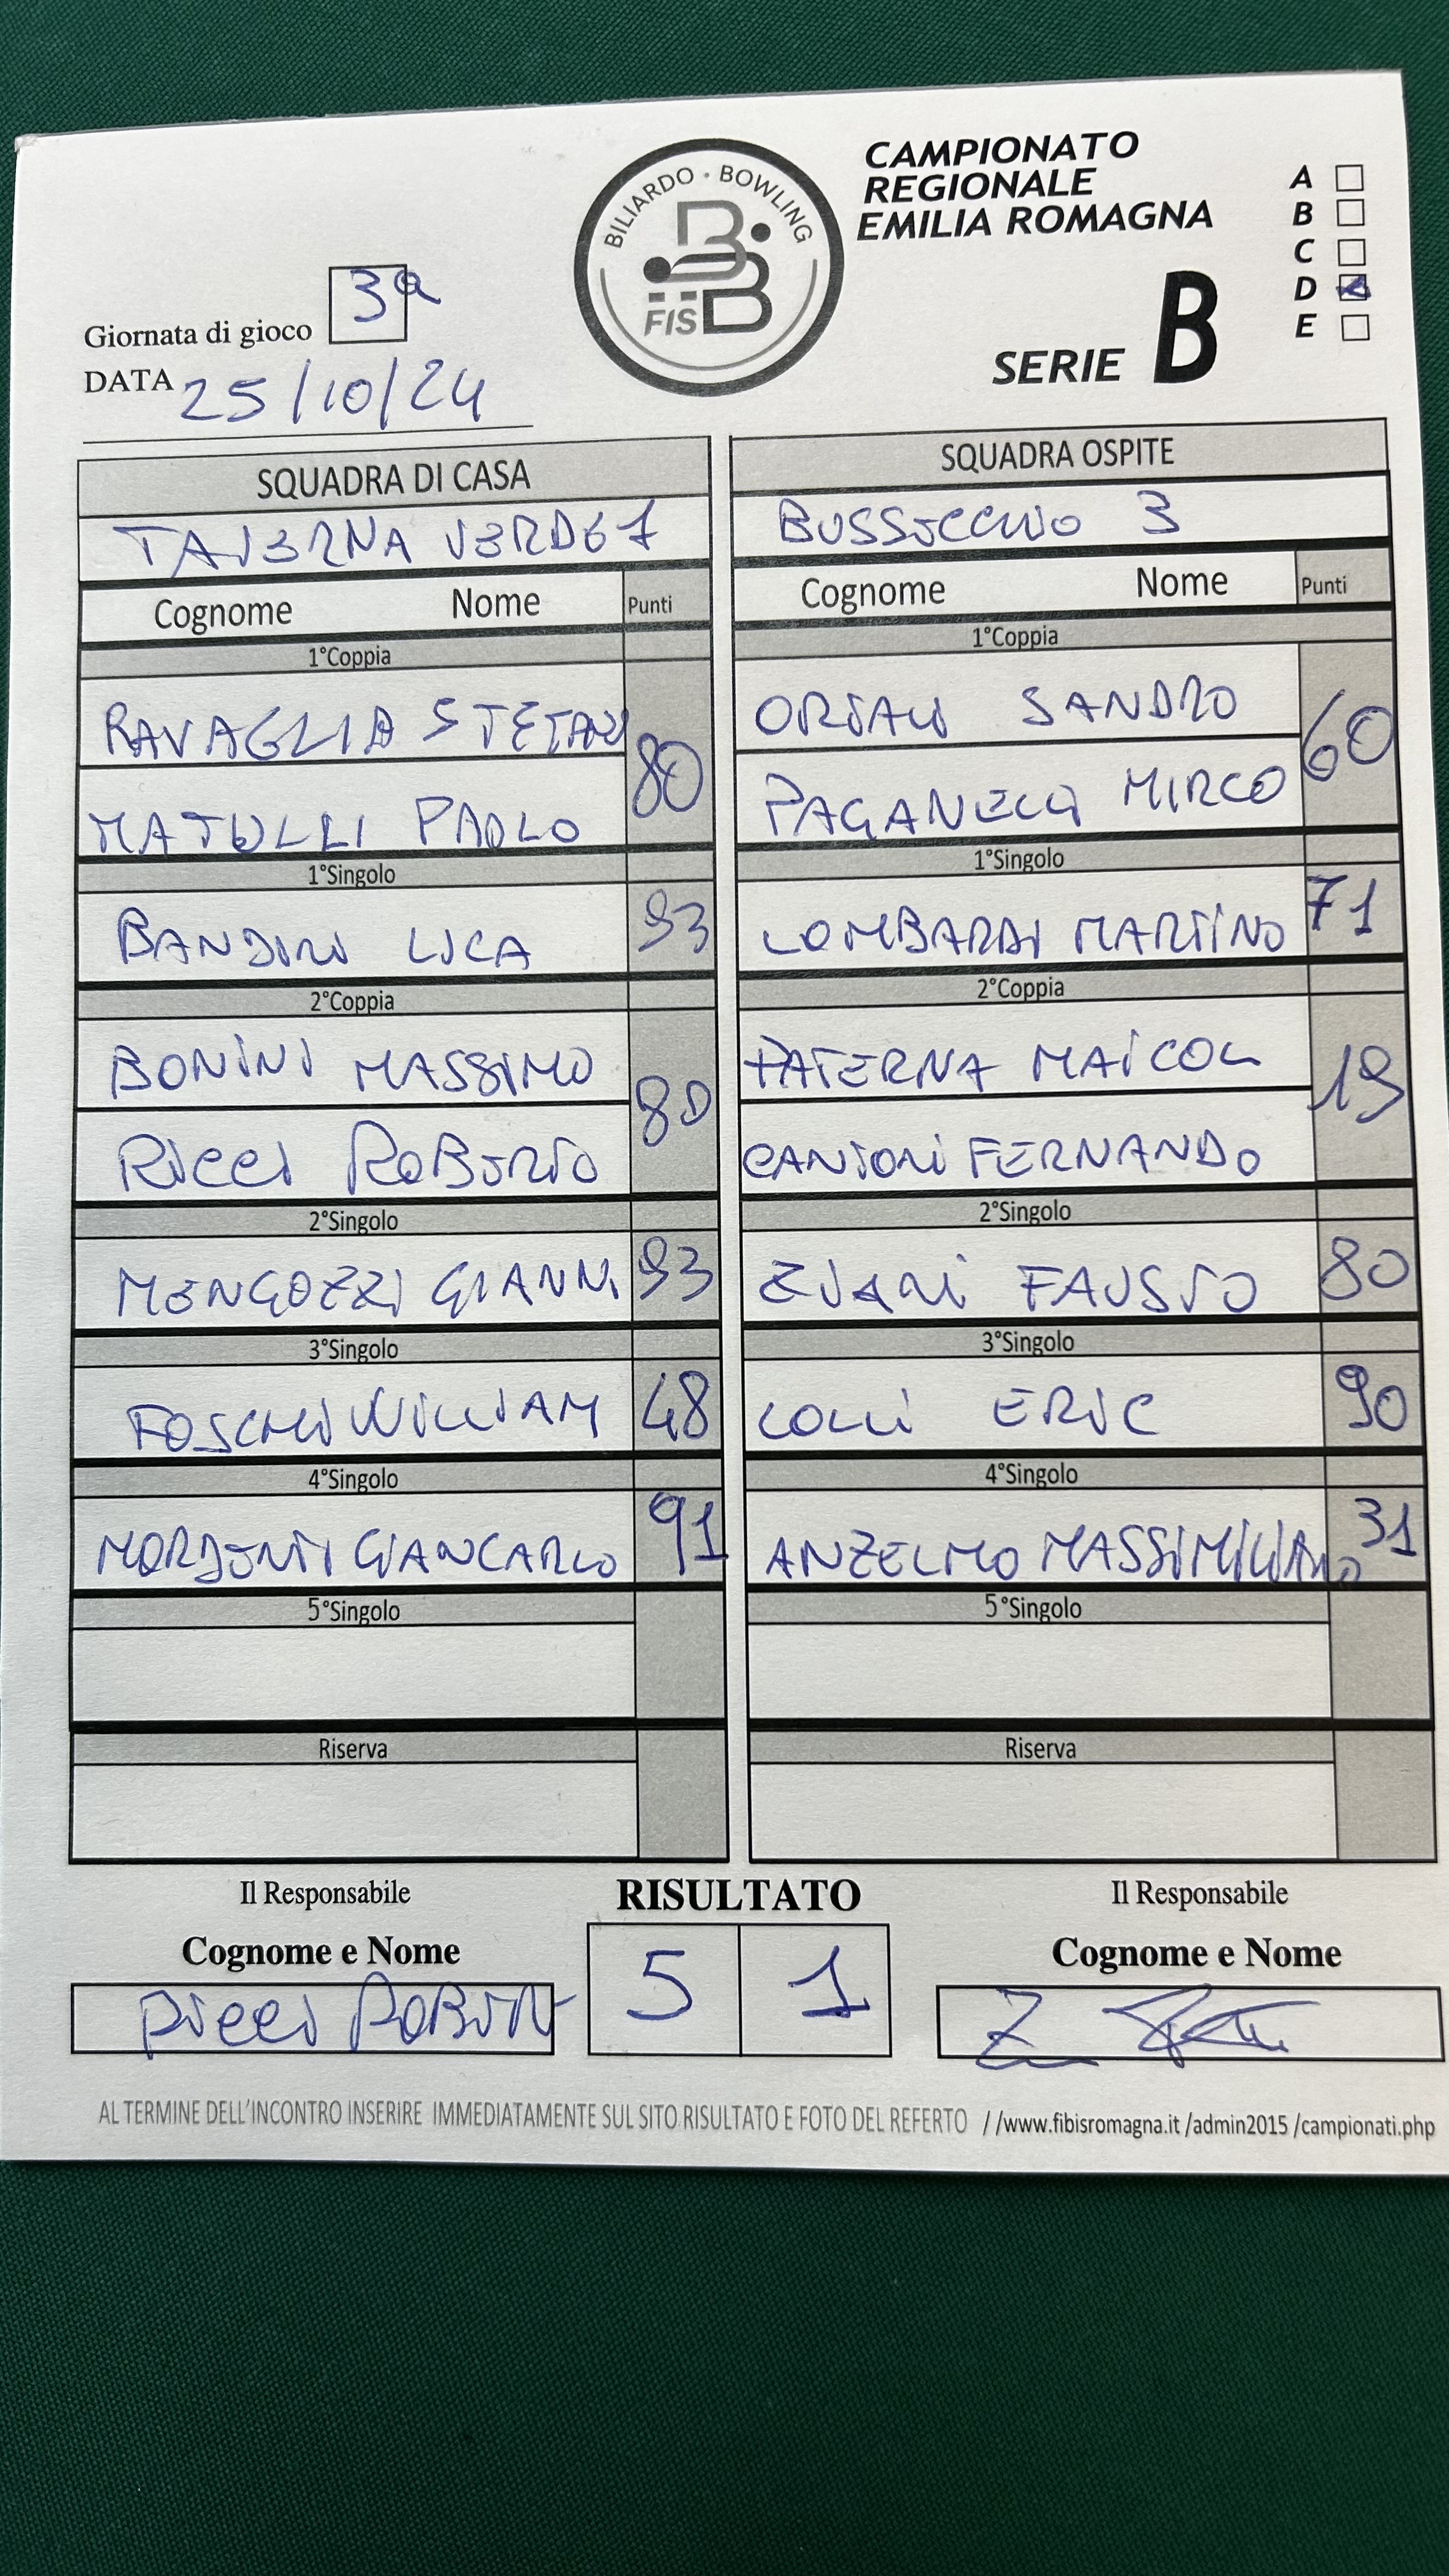 BILIARDO • BOWLING
FISBB
CAMPIONATO
REGIONALE
EMILIA ROMAGNA
SERIE B
A
B
C
D
E
Giornata di gioco 3a
DATA 25/10/24
SQUADRA DI CASA
TAVERNA VERDE 1
Cognome Nome Punti
1°Coppia
RAVAGLIA STEFANO 80
MATULLI PAOLO
1°Singolo
BANDINI LUCA 93
2°Coppia
BONINI MASSIMO 80
RICCI ROBERTO
2°Singolo
MENGOZZI GIANNI 93
3°Singolo
FOSCHI WILLIAM 48
4°Singolo
MORDENTI GIANCARLO 91
5°Singolo
Riserva
SQUADRA OSPITE
BUSSECCHIO 3
Cognome Nome Punti
1°Coppia
ORIALI SANDRO 60
PAGANELLI MIRCO
1°Singolo
LOMBARDI MARTINO 71
2°Coppia
PATERNA MAICOL 19
CANTONI FERNANDO
2°Singolo
ZUANI FAUSTO 80
3°Singolo
LOLLI ERIC 90
4°Singolo
ANZELMO MASSIMILIANO 31
5°Singolo
Riserva
Il Responsabile
Cognome e Nome
RICCI
RISULTATO
5 1
Il Responsabile
Cognome e Nome
AL TERMINE DELL'INCONTRO INSERIRE IMMEDIATAMENTE SUL SITO RISULTATO E FOTO DEL REFERTO //www.fibisromagna.it /admin2015 /campionati.php